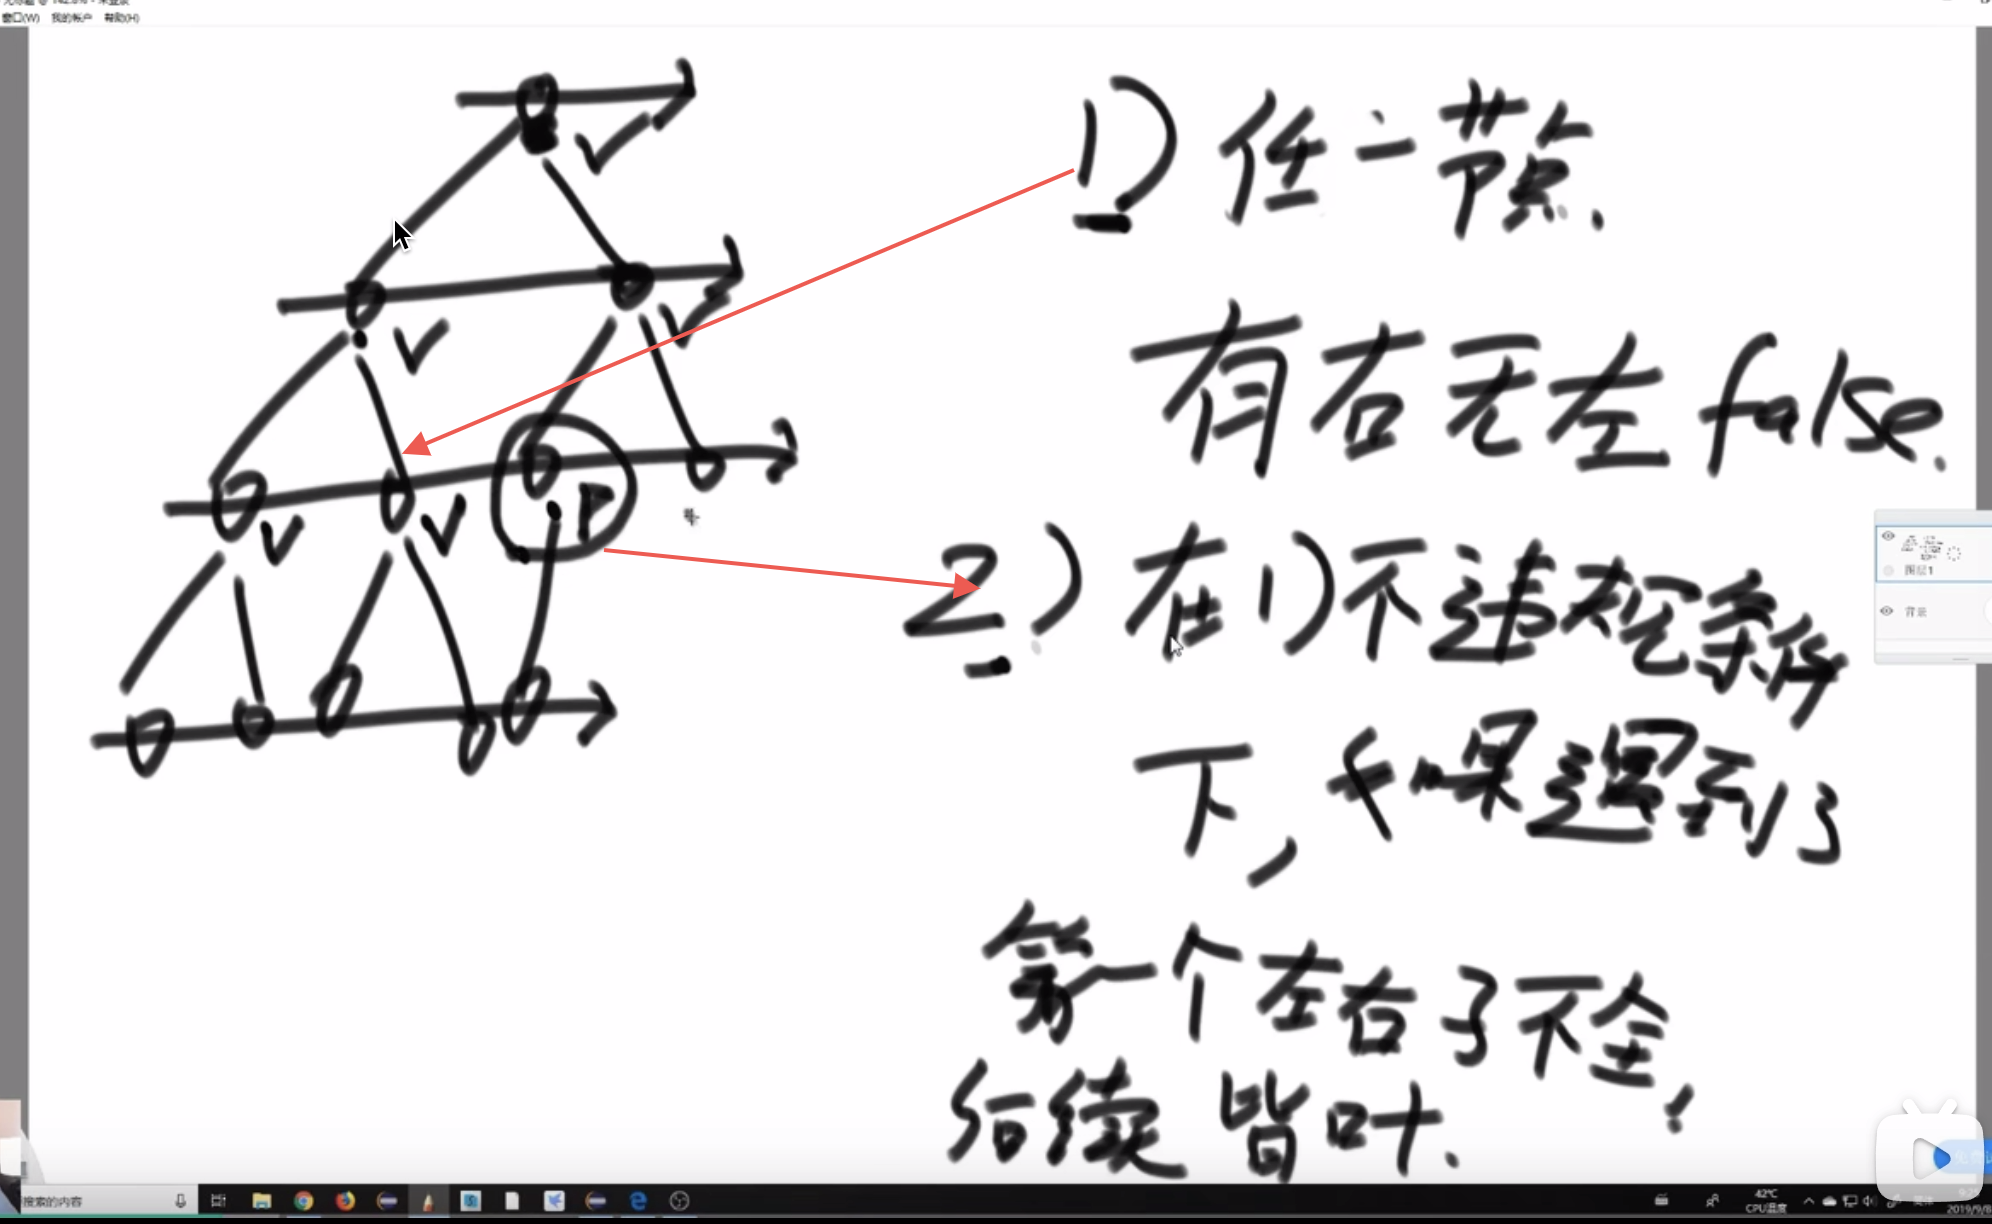 窗口(W) 我的帐户 帮助(H)
1) 任一节点.
有右无左 false.
2) 在1)不违规条件
下, 如果遇到了
第一个左右子不全,
后续皆叶.
图层1
背景
搜索的内容
42℃
CPU温度
2019/9/8